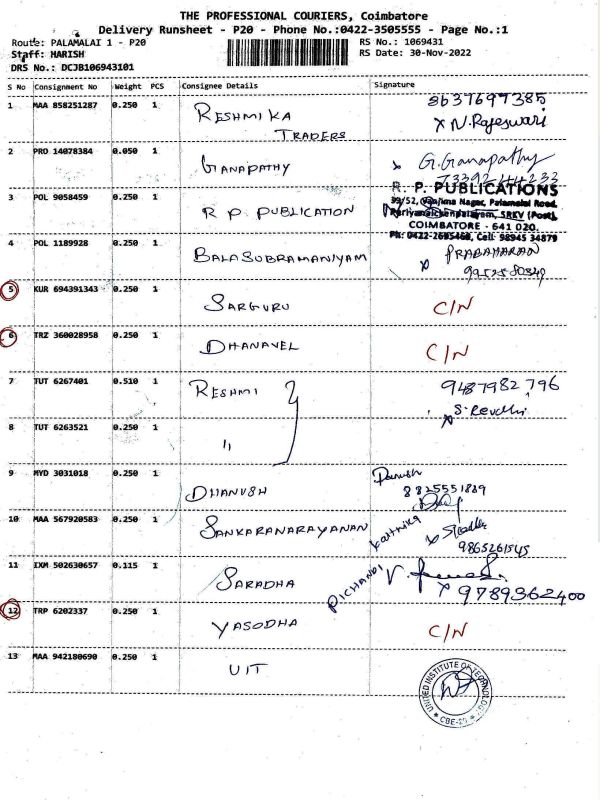 THE PROFESSIONAL COURIERS, Coimbatore
Delivery Runsheet - P20 - Phone No.:0422-3505555 - Page No.:1
Route: PALAMALAI 1 - P20
RS No.: 1069431
Staff: HARISH
RS Date: 30-Nov-2022
DRS No.: DCJB106943101
S No Consignment No Weight PCS Consignee Details Signature
1 MAA 858251287 0.250 1 RESHMIKA TRADERS 8637697385
X N. Rajeswari
2 PRO 14078384 0.050 1 GANAPATHY G. Ganapathy
7339244233
3 POL 9058459 0.250 1 R P PUBLICATION R. P. PUBLICATIONS
Nagar, Palamalai Road,
SRKV (Post),
COIMBATORE - 641 020.
Cell: 98945 34879
4 POL 1189928 0.250 1 BALASUBRAMANIYAM X PRABAHARAN
5 KUR 694391343 0.250 1 SARGURU C/N
6 TRZ 360028958 0.250 1 DHANAVEL C/N
7 TUT 6267401 0.510 1 RESHMI 9487982796
X S. Revathi
8 TUT 6263521 1 "
9 MYD 3031018 0.250 1 DHANUSH
8825551889
10 MAA 567920583 0.250 1 SANKARANARAYANAN Karthika
9865261545
11 IXM 502630657 0.115 1 SARADHA PICHANDI V.
X 9789362400
12 TRP 6202337 0.250 1 YASODHA C/N
13 MAA 942180690 0.250 1 UIT
UNITED INSTITUTE OF TECHNOLOGY